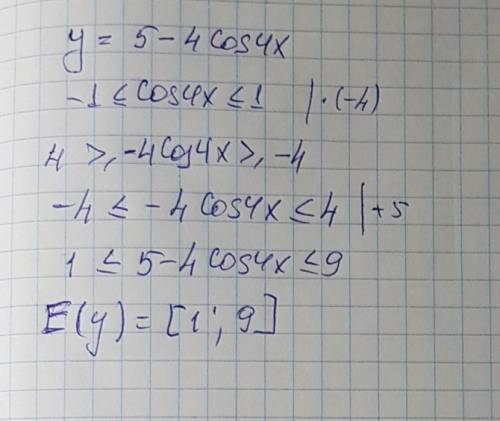 y = 5 - 4 cos4x
-1 ≤ cos4x ≤ 1 | · (-4)
4 ≥, -4cos4x ≥, -4
-4 ≤ -4 cos4x ≤ 4 | + 5
1 ≤ 5 - 4cos4x ≤ 9
E(y) = [1; 9]